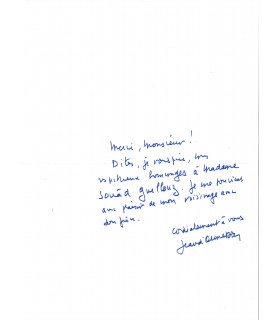 Merci, monsieur !
Dites, je vous prie, mes
hommages à Madame
Souâd Guellouz. Je me souviens
avec plaisir de mon voisinage avec
Cordialement à vous